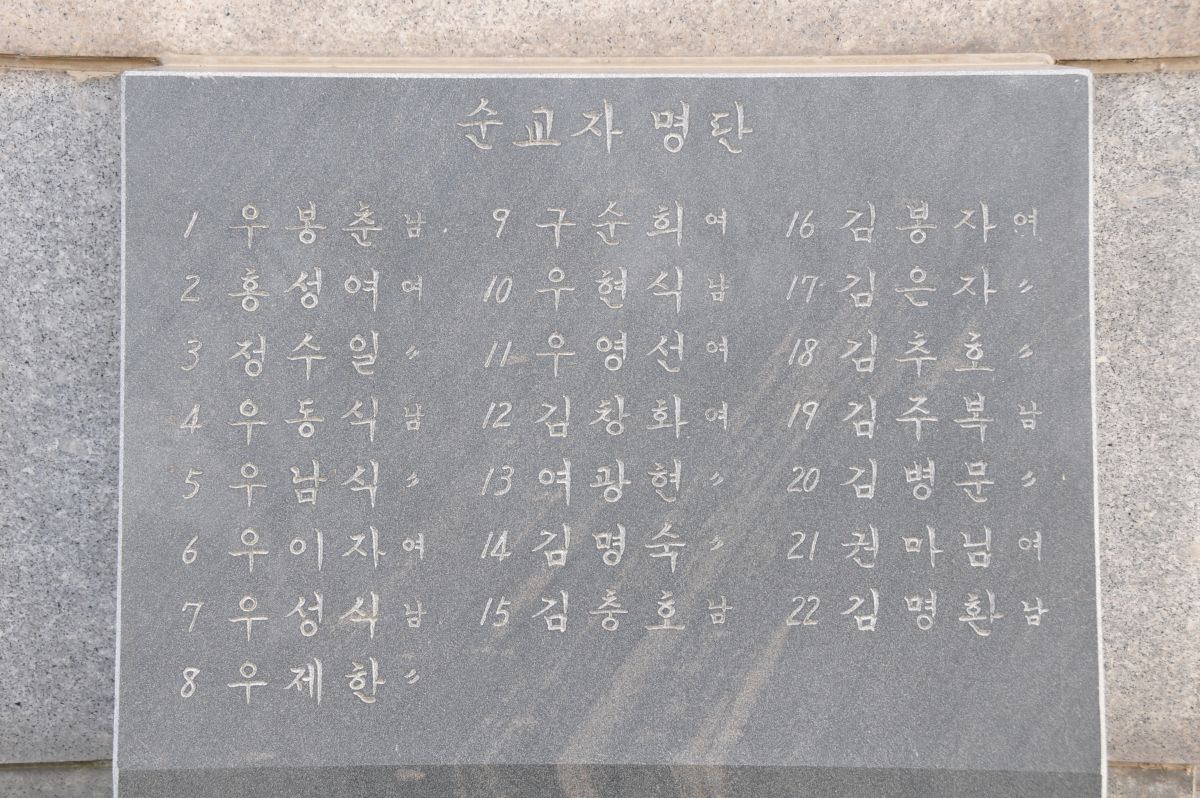 순교자 명단
1 우봉춘 남
2 홍성여 여
3 정수일 〃
4 우동식 남
5 우남식 〃
6 우이자 여
7 우성식 남
8 우제한 〃
9 구순희 여
10 우현식 남
11 우영선 여
12 김창화 여
13 여광현 〃
14 김명숙 〃
15 김충호 남
16 김봉자 여
17 김은자 〃
18 김추호 〃
19 김주복 남
20 김병문 〃
21 권마님 여
22 김명환 남